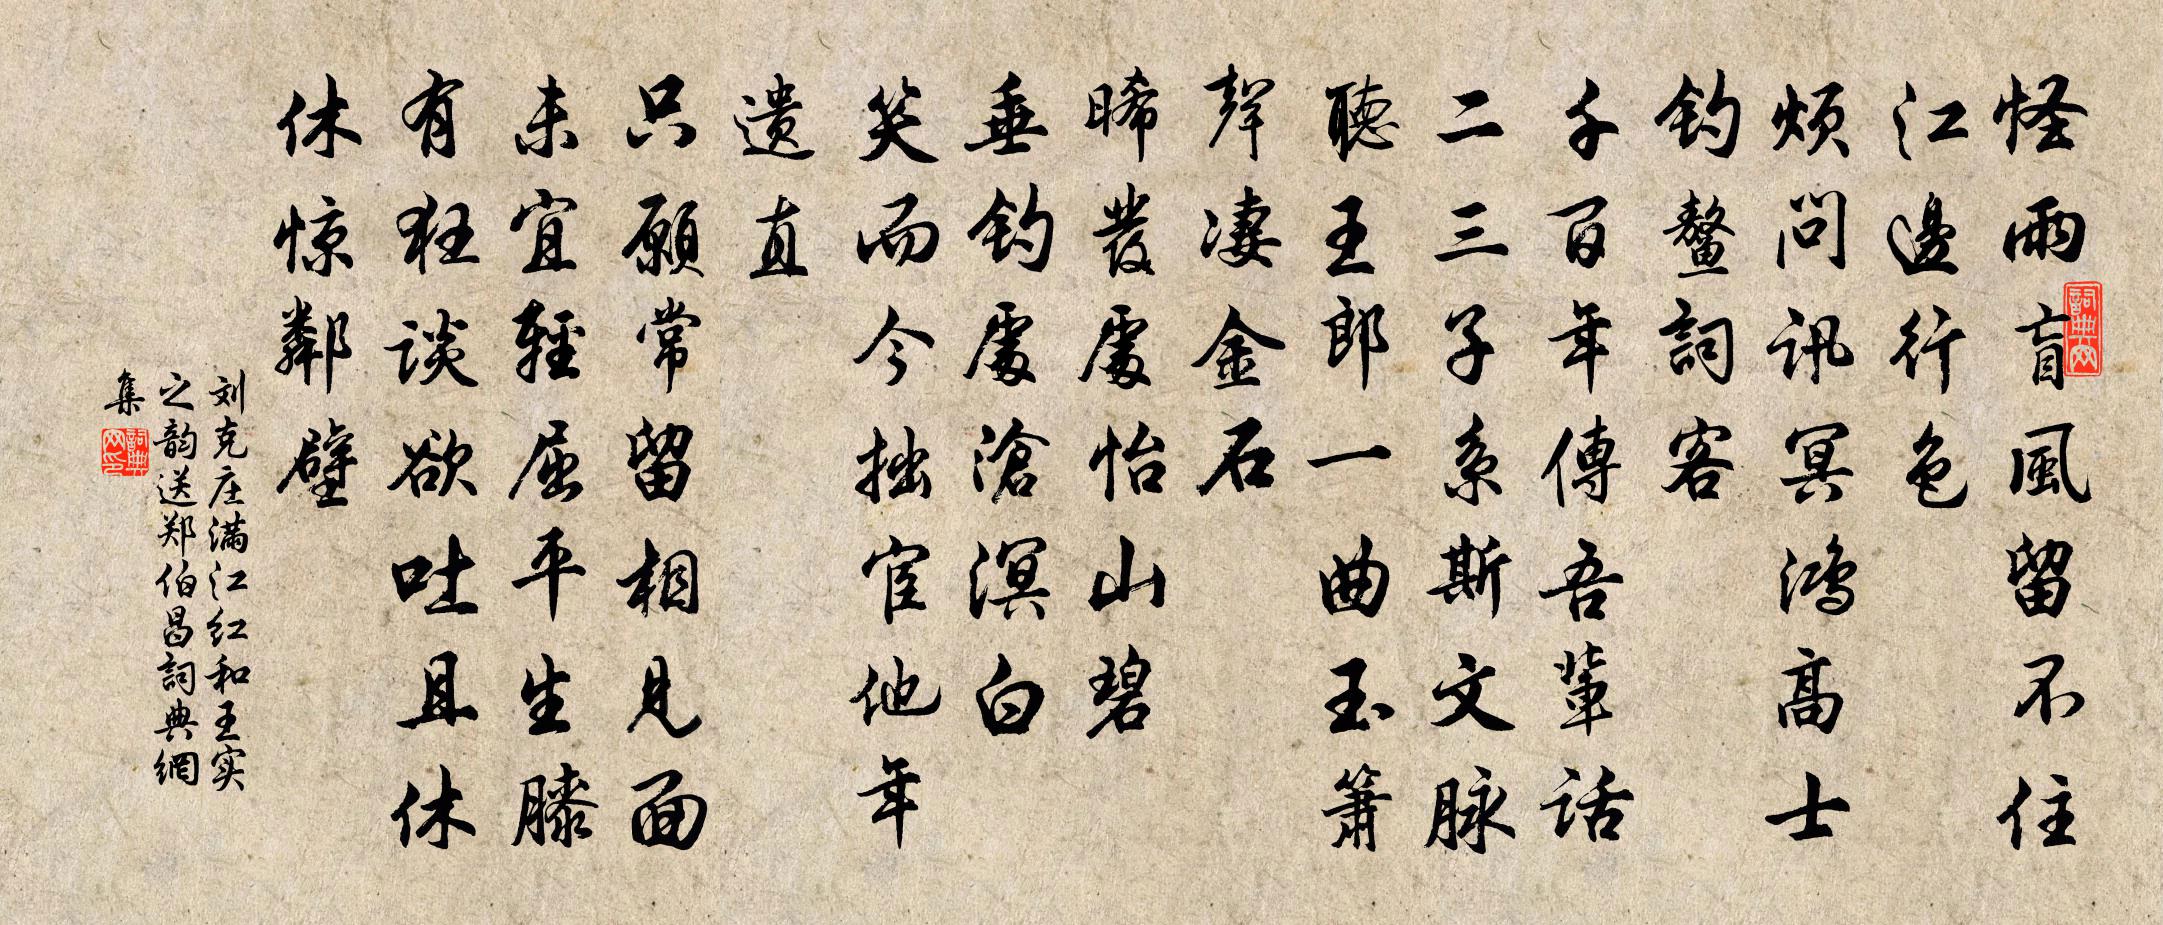 怪雨盲風留不住
江邊行色
煩問訊冥鴻高士
釣鰲詞客
千百年傳吾輩話
二三子系斯文脉
聽王郎一曲玉簫
聲凄金石
晞發處怡山碧
垂釣處滄溟白
笑而今拙宦他年
遺直
只願常留相見面
未宜輕屈平生膝
有狂談欲吐且休
休惊鄰壁
刘克庄满江红和王实
之韵送郑伯昌詞典網
集
詞典网
詞典网印